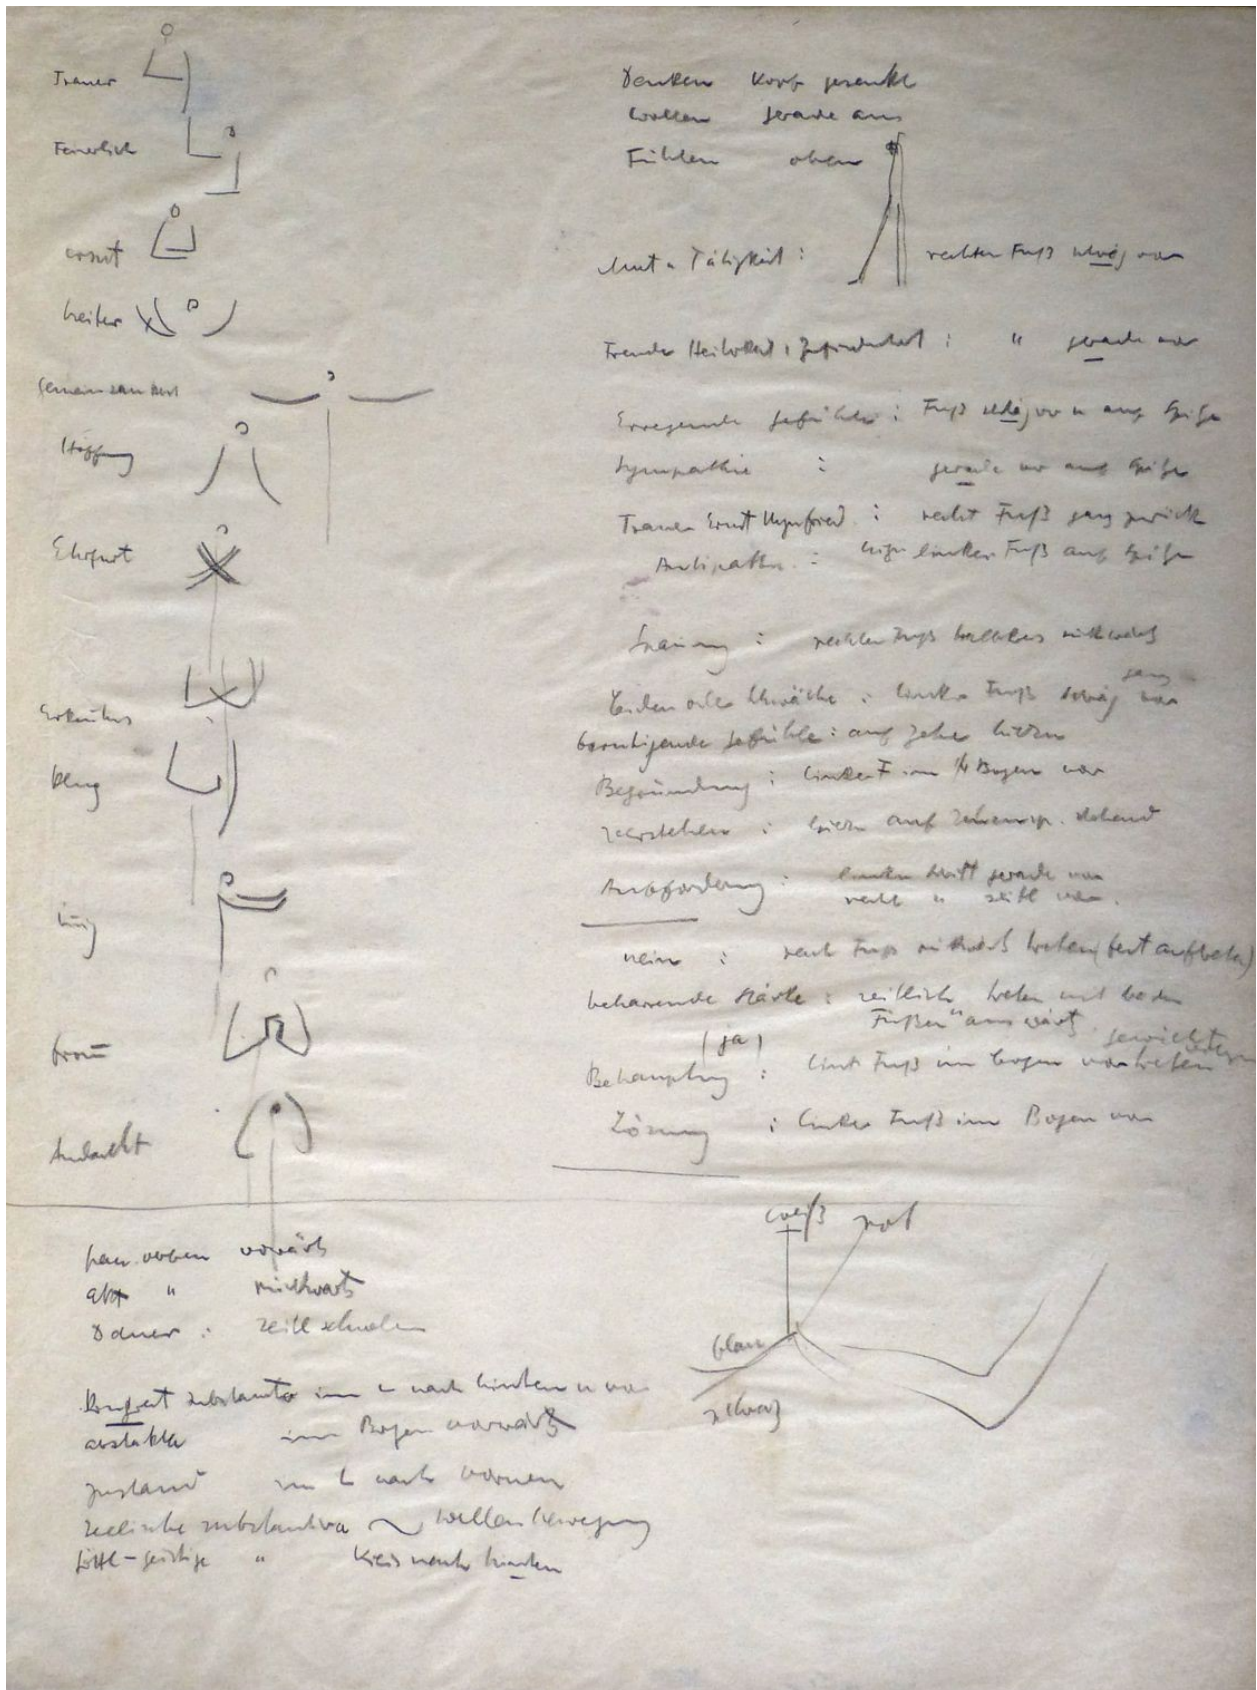 Trauer
Feierlich
ernst
heiter
Gemeinsamkeit
Hoffnung
Ehrfurcht
Erkenntnis
klug
innig
Andacht
Denken Kopf gesenkt
Wollen gerade aus
Fühlen oben
Mut u Tätigkeit : rechter Fuß schräg vor
Freude Heiterkeit, Zufriedenheit : " gerade vor
Erregende Gefühle : Fuß schräg vor u auf Spitze
Sympathie : gerade vor auf Spitze
Trauer Ernst : recht Fuß ganz zurück
Antipathie : linker Fuß auf Spitze
: rechter Fuß rückwärts
Leiden oder Schwäche : linker Fuß schräg ganz vor
beruhigende Gefühle : auf Zehe
Begründung : linker F im Bogen vor
verstehen : auf Zehensp. stehend
Aufforderung : linken Schritt gerade vor
recht " seitl vor.
nein : recht Fuß rückwärts treten (fest auftreten)
beharrende Stärke : seitlich treten mit beiden
Füßen auswärts
(ja)
Behauptung : link Fuß im Bogen vortreten
Lösung : linker Fuß im Bogen vor
weiß rot
blau
schwarz
pass. verben vorwärts
akt " rückwärts
Dauer : seitl
Konkret substantiva im nach hinten u vor
abstrakte im Bogen vorwärts
Zustand im nach vornen
seelische substantiva Wellenbewegung
göttl-geistige " Kreis nach hinten